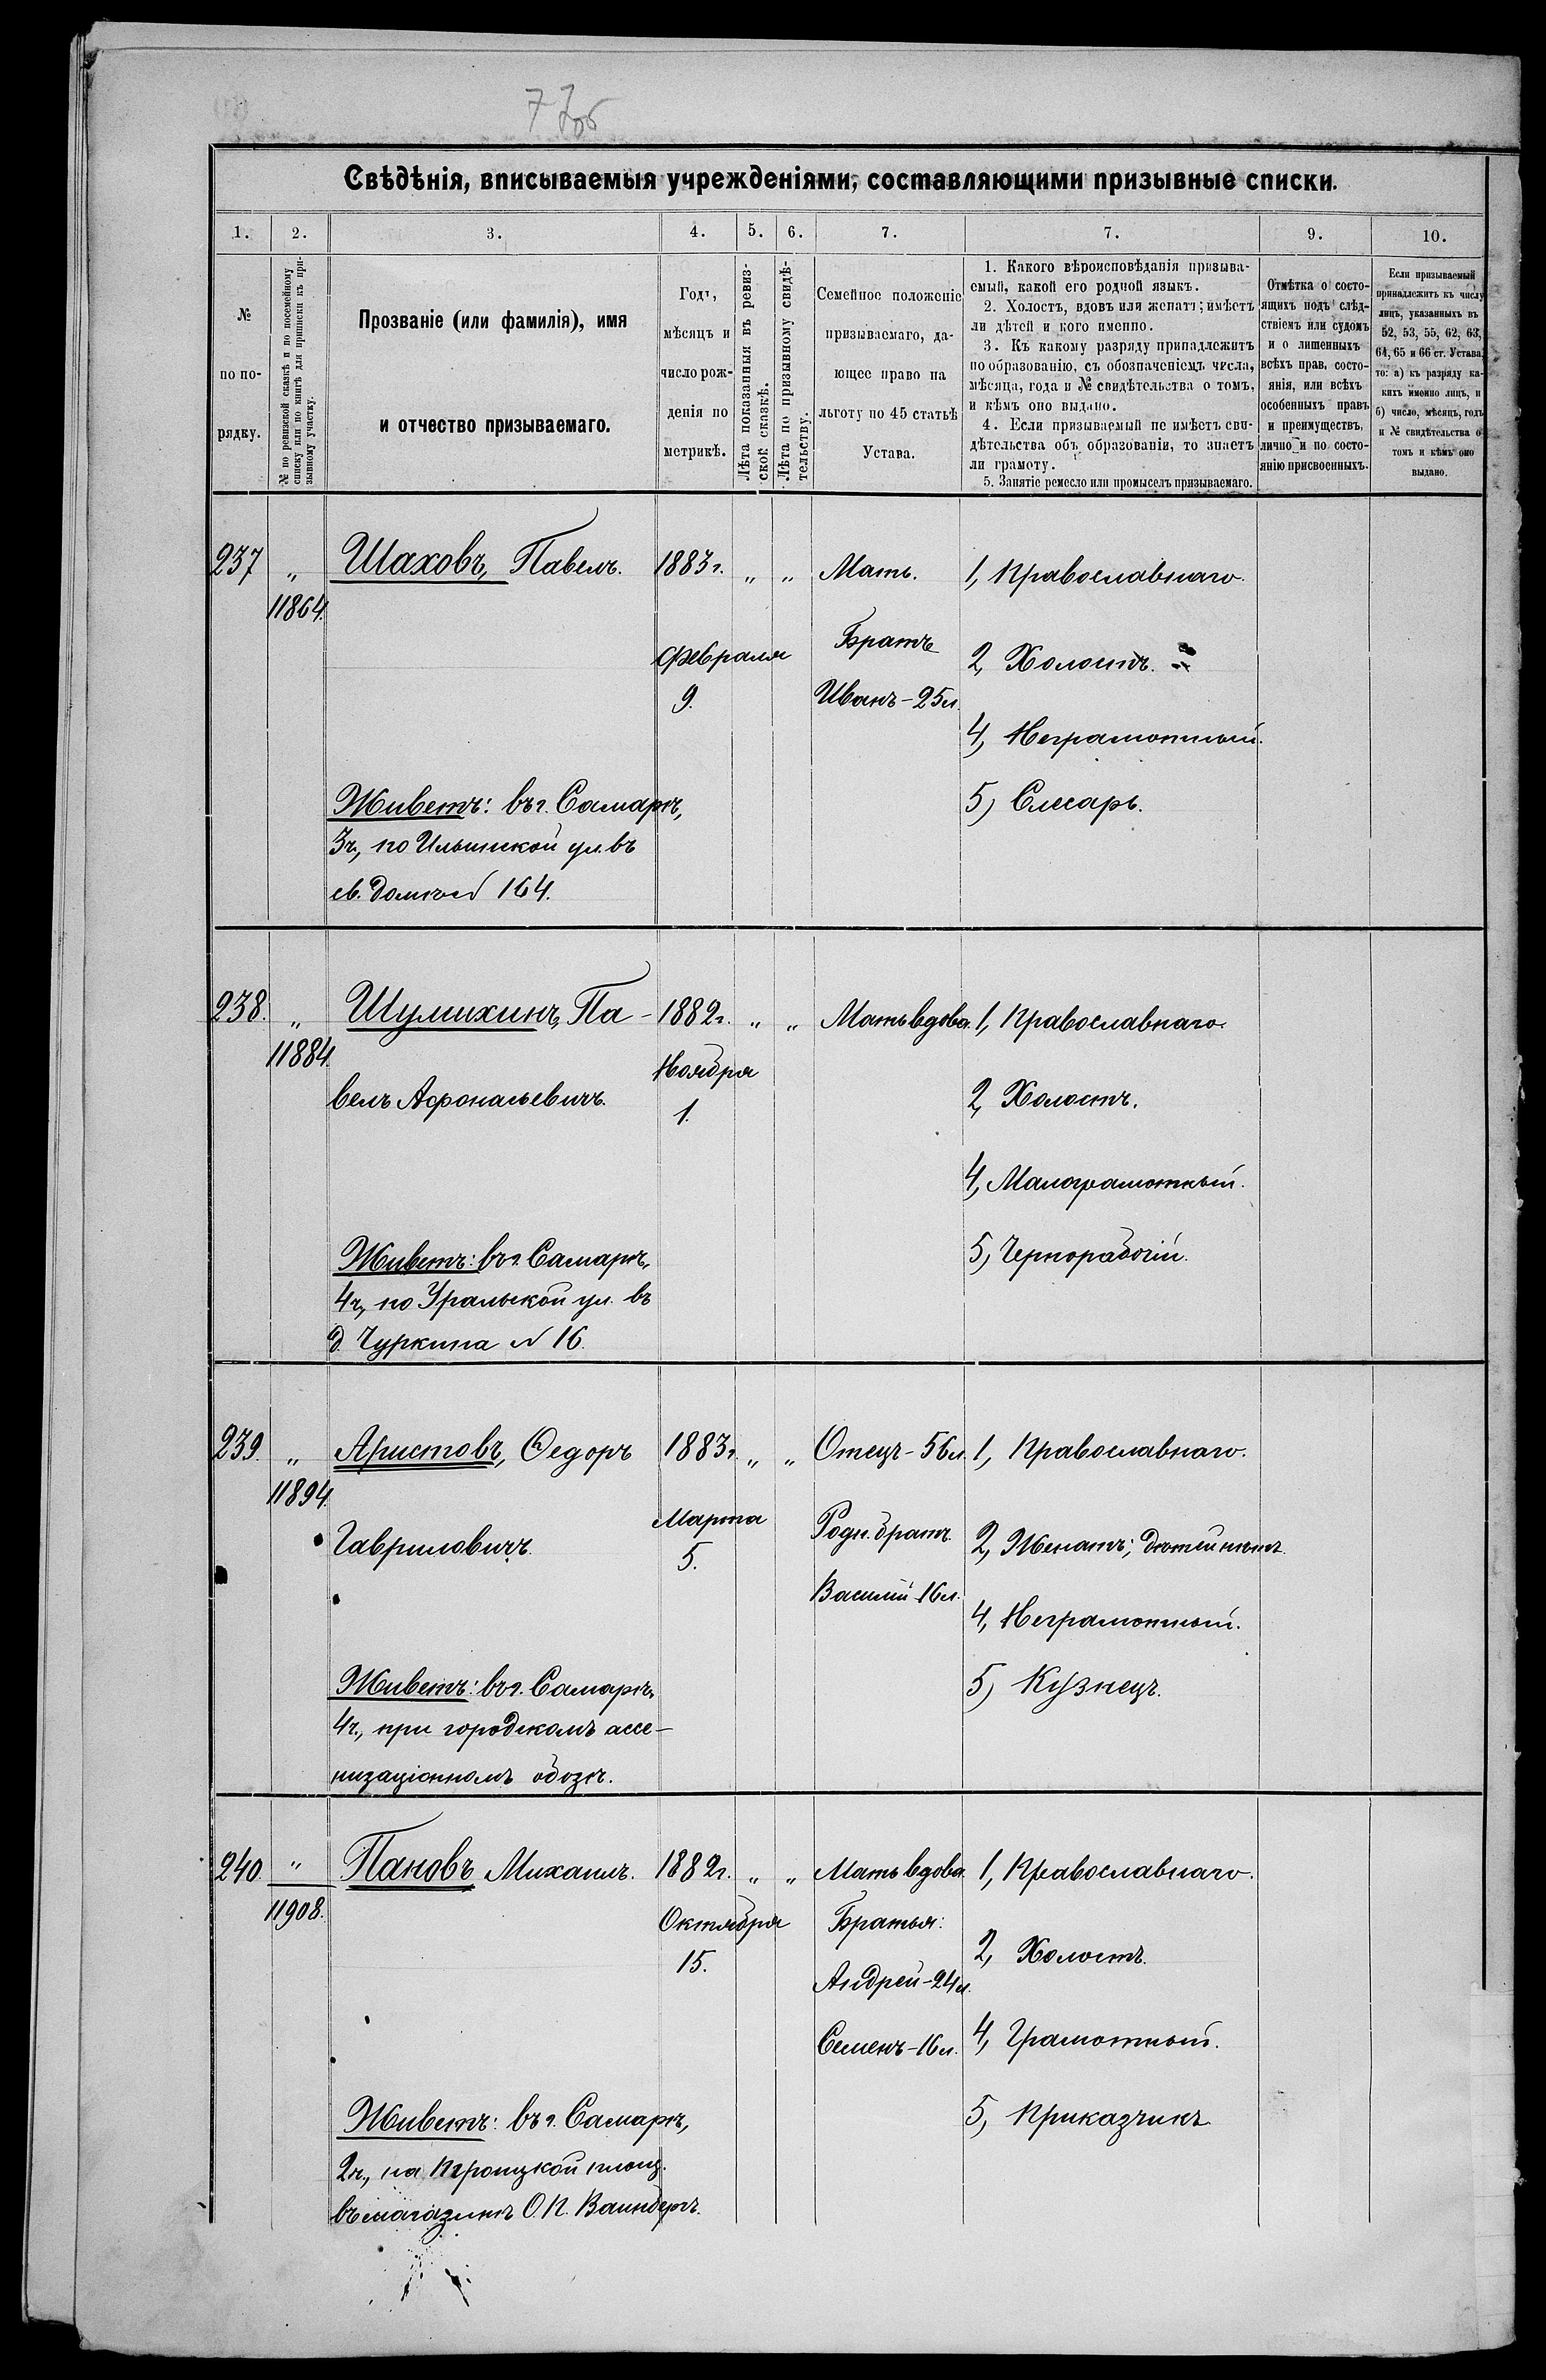 7 7об
Свѣдѣнія, вписываемыя учрежденіями, составляющими призывные списки.
1. 2. 3. 4. 5. 6. 7. 7. 9. 10.
№
по по-
рядку.
№ по ревизской сказкѣ и по посемейному
списку или по книгѣ для приписки къ при-
зывному участку.
Прозваніе (или фамилія), имя
и отчество призываемаго.
Годъ,
мѣсяцъ и
число рож-
денія по
метрикѣ.
Лѣта показанныя въ ревиз-
ской сказкѣ.
Лѣта по призывному свидѣ-
тельству.
Семейное положеніе
призываемаго, да-
ющее право на
льготу по 45 статьѣ
Устава.
1. Какого вѣроисповѣданія призыва-
емый, какой его родной языкъ.
2. Холостъ, вдовъ или женатъ; имѣетъ
ли дѣтей и кого именно.
3. Къ какому разряду принадлежитъ
по образованію, съ обозначеніемъ числа,
мѣсяца, года и № свидѣтельства о томъ,
и кѣмъ оно выдано.
4. Если призываемый не имѣетъ сви-
дѣтельства объ образованіи, то знаетъ
ли грамоту.
5. Занятіе ремесло или промыселъ призываемаго.
Отмѣтка о состо-
ящихъ подъ слѣд-
ствіемъ или судомъ
и о лишенныхъ
всѣхъ прав, состо-
янія, или всѣхъ
особенныхъ правъ
и преимуществъ,
лично и по состо-
янію присвоенныхъ.
Если призываемый
принадлежитъ къ числу
лицъ, указанныхъ въ
52, 53, 55, 62, 63,
64, 65 и 66 ст. Устава,
то: а) къ разряду ка-
кихъ именно лицъ, и
б) число, мѣсяцъ, годъ
и № свидѣтельства о
томъ и кѣмъ оно
выдано.
237 " Шаховъ, Павелъ. 1883 г. " " Мать. 1, Православнаго.
11864.
Февраля
9.
Братъ
Иванъ - 25 л.
2, Холостъ.
4, Неграмотный.
5) Слесарь.
Живетъ: въ г. Самарѣ,
3 ч., по Ильинской ул. въ
св. домѣ № 164.
238. " Шумихинъ, Па- 1882 г. " " Мать вдова. 1, Православнаго.
11884.
велъ Афонасьевичъ.
Ноября
1.
2, Холостъ.
4, Малограмотный.
5, Чернорабочій.
Живетъ: въ г. Самарѣ,
4 ч., по Уральской ул. въ
д. Чуркина № 16.
239. " Аристовъ, Федоръ 1883 г. " " Отецъ - 56 л. 1, Православнаго.
11894.
Гавриловичъ.
Марта
5.
Родн. братъ
Василій 16 л.
2, Женатъ; дѣтей нѣтъ.
4, Неграмотный.
5) Кузнецъ.
Живетъ: въ г. Самарѣ,
4 ч., при городскомъ ассе-
низаціонномъ обозѣ.
240. " Пановъ Михаилъ. 1882 г. " " Мать вдова. 1, Православнаго.
11908.
Октября
15.
Братья:
Андрей - 24 л.
Семенъ - 16 л.
2, Холостъ.
4, Грамотный.
5, Приказчикъ.
Живетъ: въ г. Самарѣ,
2 ч., на Троицкой площ.
въ магазинѣ О. П. Ваинберъ.